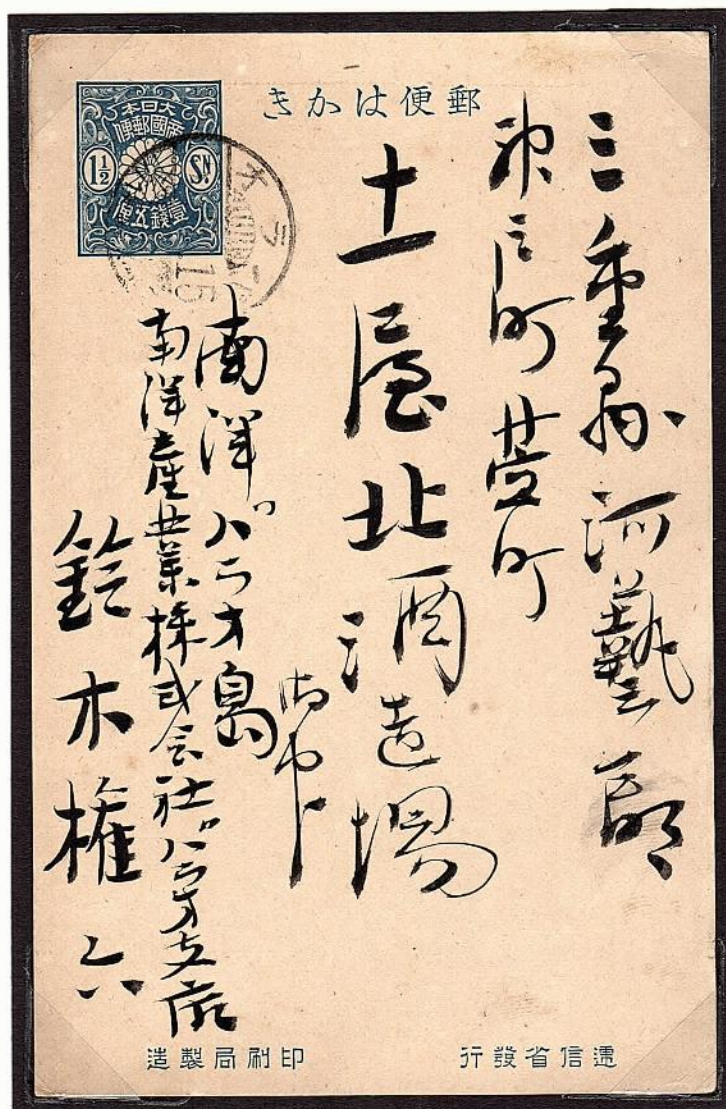 郵便はかき
大日本
帝國郵便
1½ SN
壹錢五厘
15
三重縣河藝郡
神戸町萱町
土屋北酒造場
御中
南洋パラオ島
南洋産業株式会社パラオ支店
鈴木権六
遞信省發行
印刷局製造